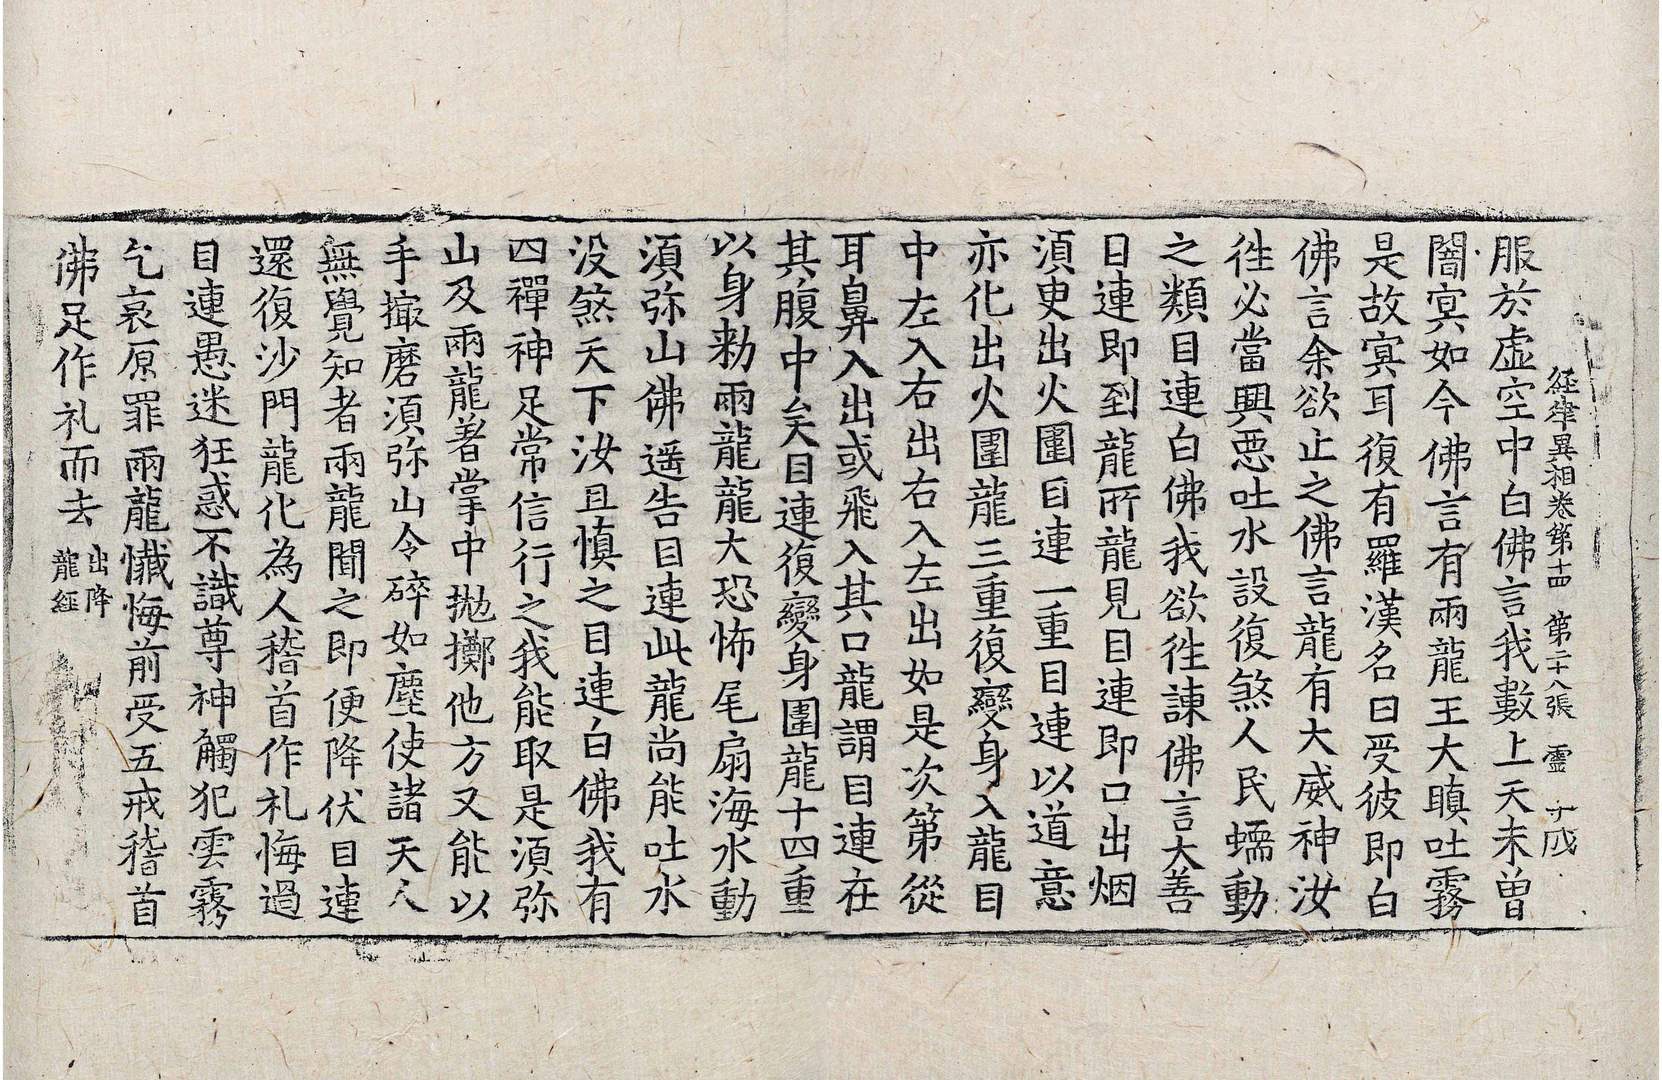 経律異相卷第十四 第二十八張 霊
服於虚空中白佛言我數上天未曾
闇㝠如今佛言有兩龍王大瞋吐霧
是故㝠耳復有羅漢名曰受彼即白
佛言余欲止之佛言龍有大威神汝
徃必當興悪吐水設復煞人民蠕動
之類目連白佛我欲徃諫佛言大善
目連即到龍所龍見目連即口出烟
湏更出火圍目連一重目連以道意
亦化出火圍龍三重復變身入龍目
中左入右出右入左出如是次第從
耳鼻入出或飛入其口龍謂目連在
其腹中矣目連復變身圍龍十四重
以身勑兩龍龍大恐怖尾扇海水動
湏弥山佛遥告目連此龍尚能吐水
没煞天下汝且慎之目連白佛我有
四禪神足常信行之我能取是湏弥
山及兩龍著掌中抛擲他方又能以
手撮磨湏弥山令碎如塵使諸天人
無覺知者兩龍聞之即便降伏目連
還復沙門龍化為人稽首作礼悔過
目連愚迷狂惑不識尊神觸犯雲霧
乞哀原罪兩龍懺悔前受五戒稽首
佛足作礼而去 出降
龍經